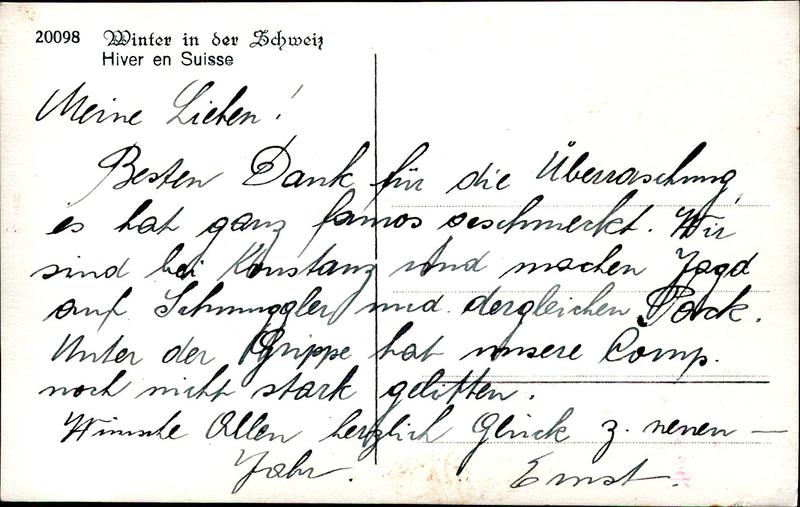 20098 Winter in der Schweiz
Hiver en Suisse
Meine Lieben!
Besten Dank für die Überraschung,
es hat ganz famos geschmeckt. Wir
sind bei Konstanz und machen Jagd
auf Schmuggler und dergleichen Pack.
Unter der Grippe hat unsere Comp.
noch nicht stark gelitten.
Wünsche Allen herzlich Glück z. neuen —
Jahr.
Ernst.